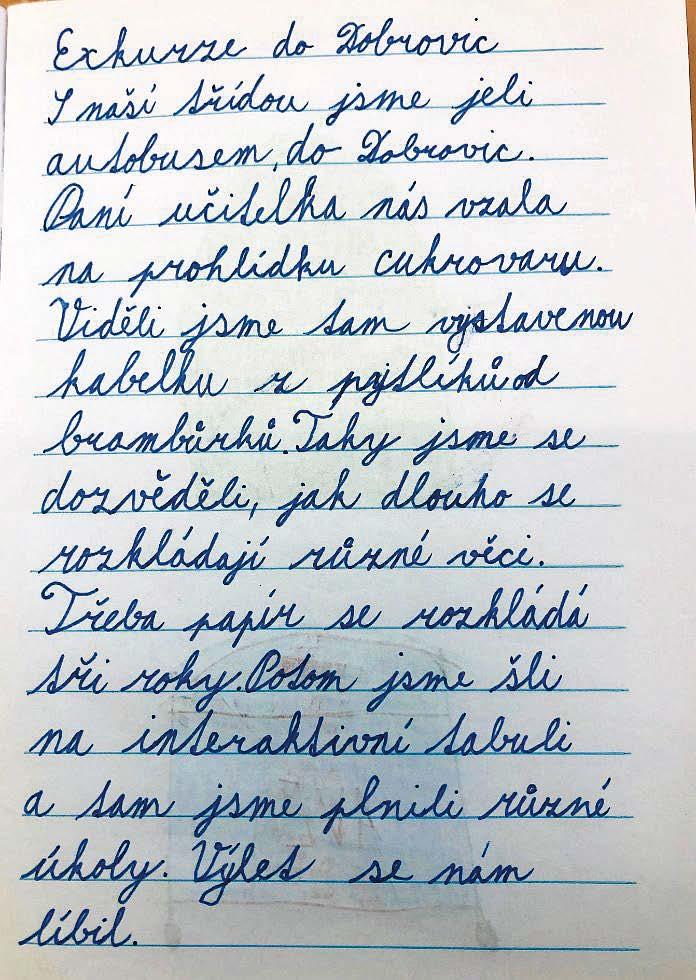 Exkurze do Dobrovic
S naší třídou jsme jeli
autobusem, do Dobrovic.
Paní učitelka nás vzala
na prohlídku cukrovaru.
Viděli jsme tam vystavenou
kabelku z pytlíků od
brambůrků. Taky jsme se
dozvěděli, jak dlouho se
rozkládají různé věci.
Třeba papír se rozkládá
tři roky. Potom jsme šli
na interaktivní tabuli
a tam jsme plnili různé
úkoly. Výlet se nám
líbil.